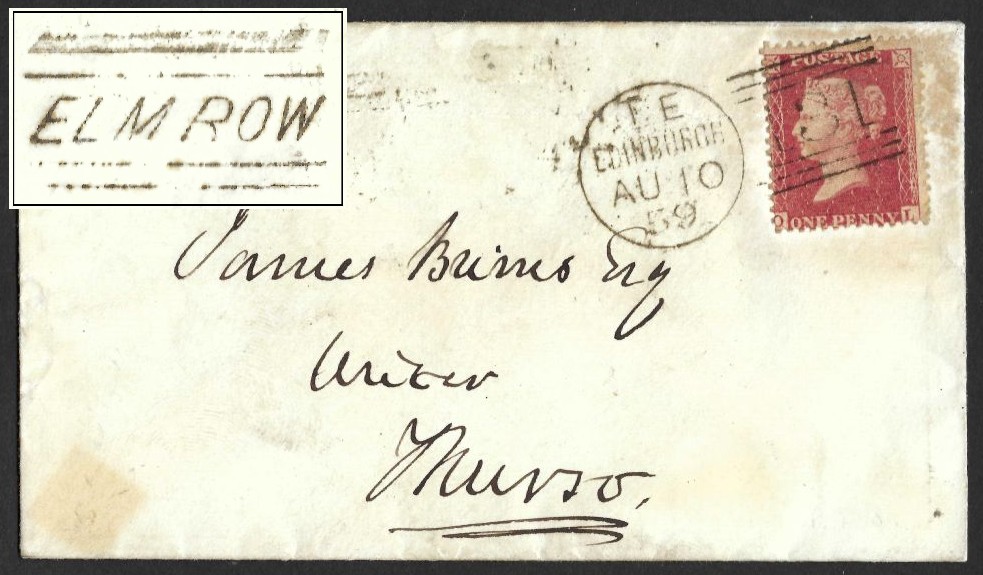 ELM ROW
T.E
EDINBURGH
AU 10
59
POSTAGE
131
ONE PENNY
O L
James Burns Esq
Writer
Thurso.